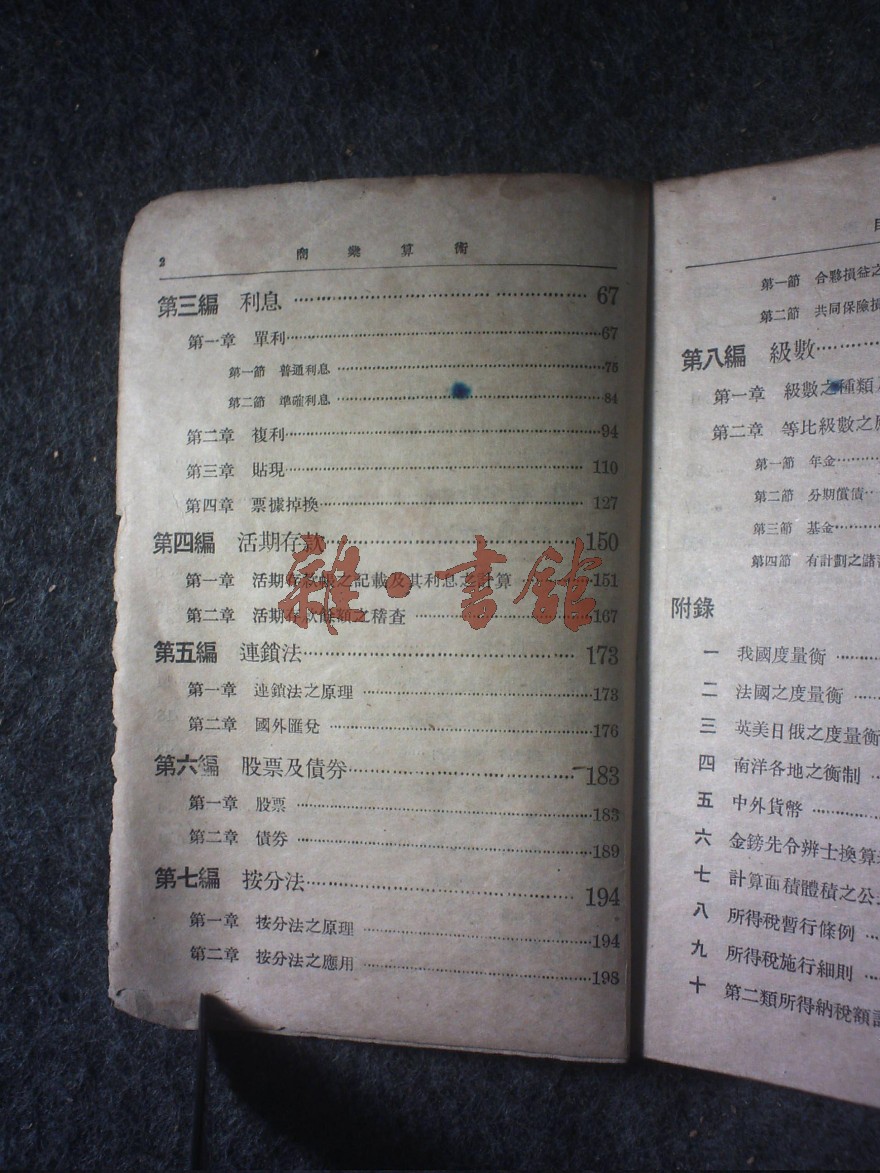 2 商業算術
第三編 利息 67
第一章 單利 67
第一節 普通利息 75
第二節 準確利息 84
第二章 複利 94
第三章 貼現 110
第四章 票據掉換 127
第四編 活期存款 150
第一章 活期存款帳之記載及其利息之計算 151
第二章 活期存款餘額之稽查 167
第五編 連鎖法 173
第一章 連鎖法之原理 173
第二章 國外匯兌 176
第六編 股票及債券 183
第一章 股票 183
第二章 債券 189
第七編 按分法 194
第一章 按分法之原理 194
第二章 按分法之應用 198
雜·書館
目
第一節 合夥損益之
第二節 共同保險損
第八編 級數
第一章 級數之種類
第二章 等比級數之
第一節 年金
第二節 分期償債
第三節 基金
第四節 有計劃之儲
附錄
一 我國度量衡
二 法國之度量衡
三 英美日俄之度量衡
四 南洋各地之衡制
五 中外貨幣
六 金鎊先令辨士換算
七 計算面積體積之公
八 所得稅暫行條例
九 所得稅施行細則
十 第二類所得納稅額